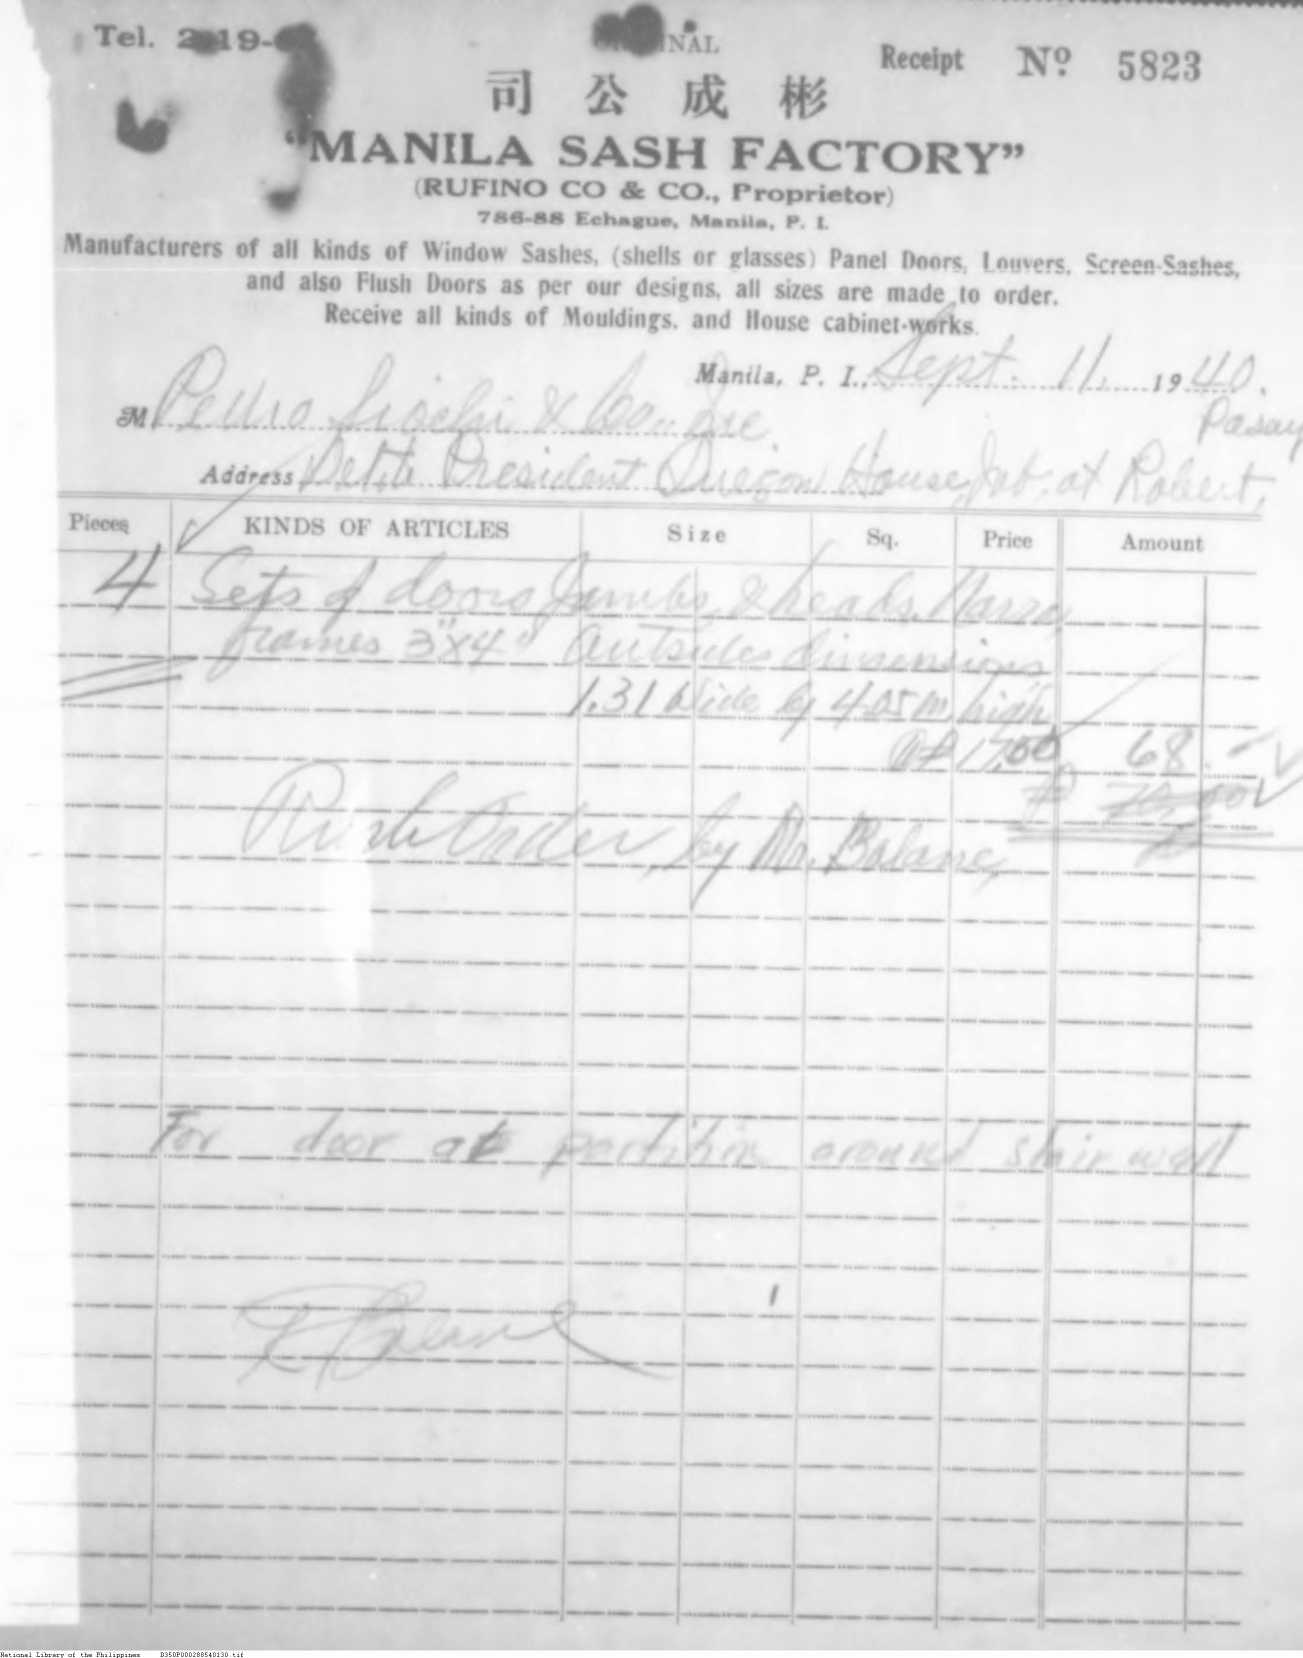 Tel. 2 19-
ORIGINAL
Receipt Nº 5823
司公成彬
"MANILA SASH FACTORY"
(RUFINO CO & CO., Proprietor)
786-88 Echague, Manila, P. I.
Manufacturers of all kinds of Window Sashes, (shells or glasses) Panel Doors, Louvers, Screen-Sashes,
and also Flush Doors as per our designs, all sizes are made to order.
Receive all kinds of Mouldings, and House cabinet-works.
Manila, P. I., Sept. 11, 1940.
M Pedro Siochi & Co. Inc.
Pasay
Address President Quezon House, Job. at Robert,
Pieces KINDS OF ARTICLES Size Sq. Price Amount
4 Sets of doors Jambs & heads
frames 3"x4" outsides dimensions
1.31 Wide by 4.05 m. high
at 17.00 68. -
₱
Rush Order, by Mr. Balane,
For door at partition around stair well
Balane
National Library of the Philippines D350P000288540130.tif